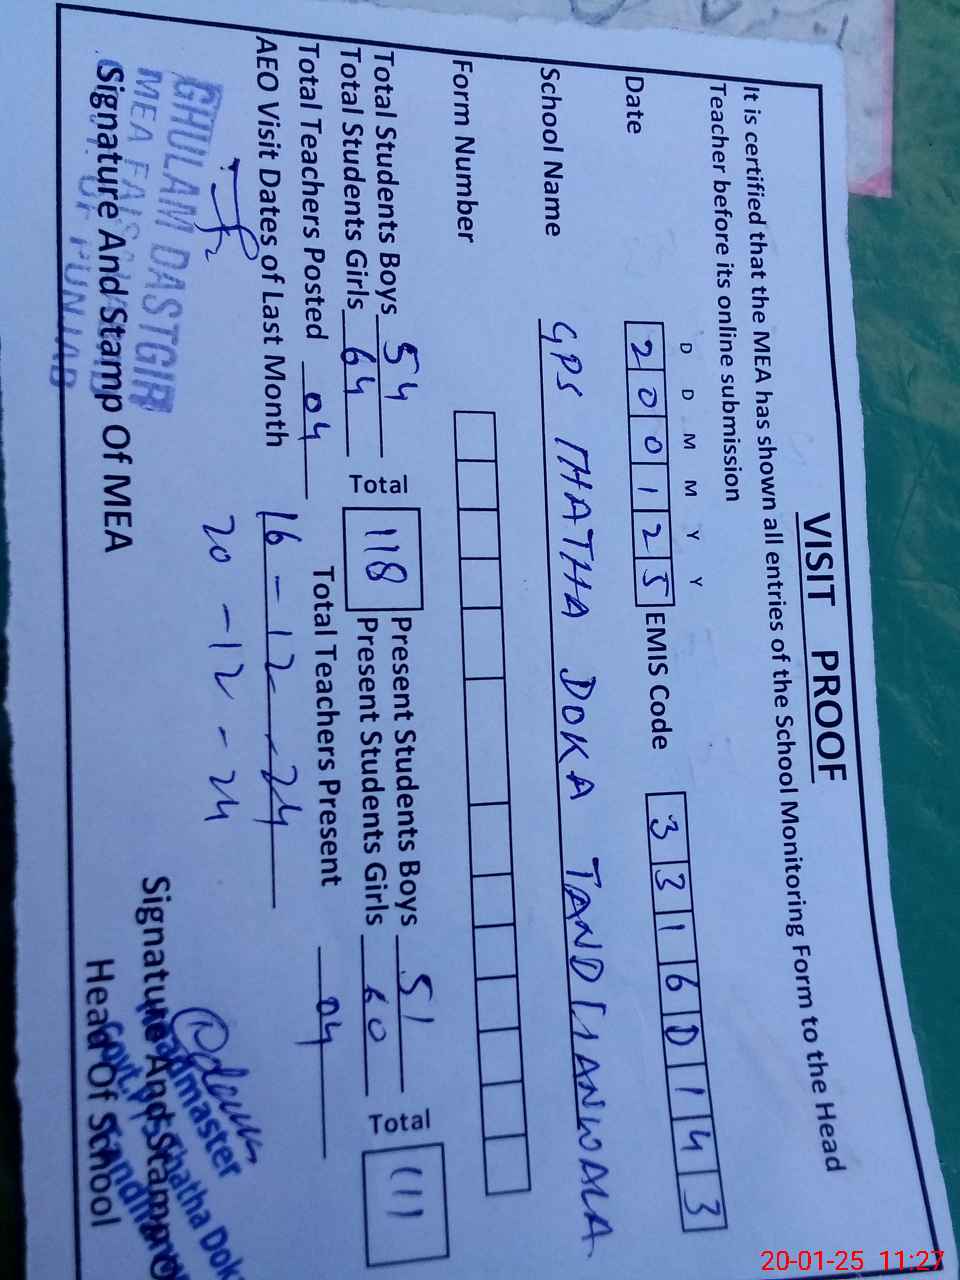 VISIT PROOF
It is certified that the MEA has shown all entries of the School Monitoring Form to the Head
Teacher before its online submission
D D M M Y Y
Date 2 0 0 1 2 5 EMIS Code 3 3 1 6 0 1 4 3
School Name GPS THATHA DOKA
Form Number
Total Students Boys 54 Total 118 Present Students Boys 51 Total 111
Total Students Girls 64 Present Students Girls 60
Total Teachers Posted 04 Total Teachers Present 04
AEO Visit Dates of Last Month 16-12-24
20-12-24
GHULAM DASTGIR
MEA
PUNJAB
Signature And Stamp Of MEA
Headmaster
Thatha Dok
Signature And Stamp Of
Head Of School
20-01-25 11:27